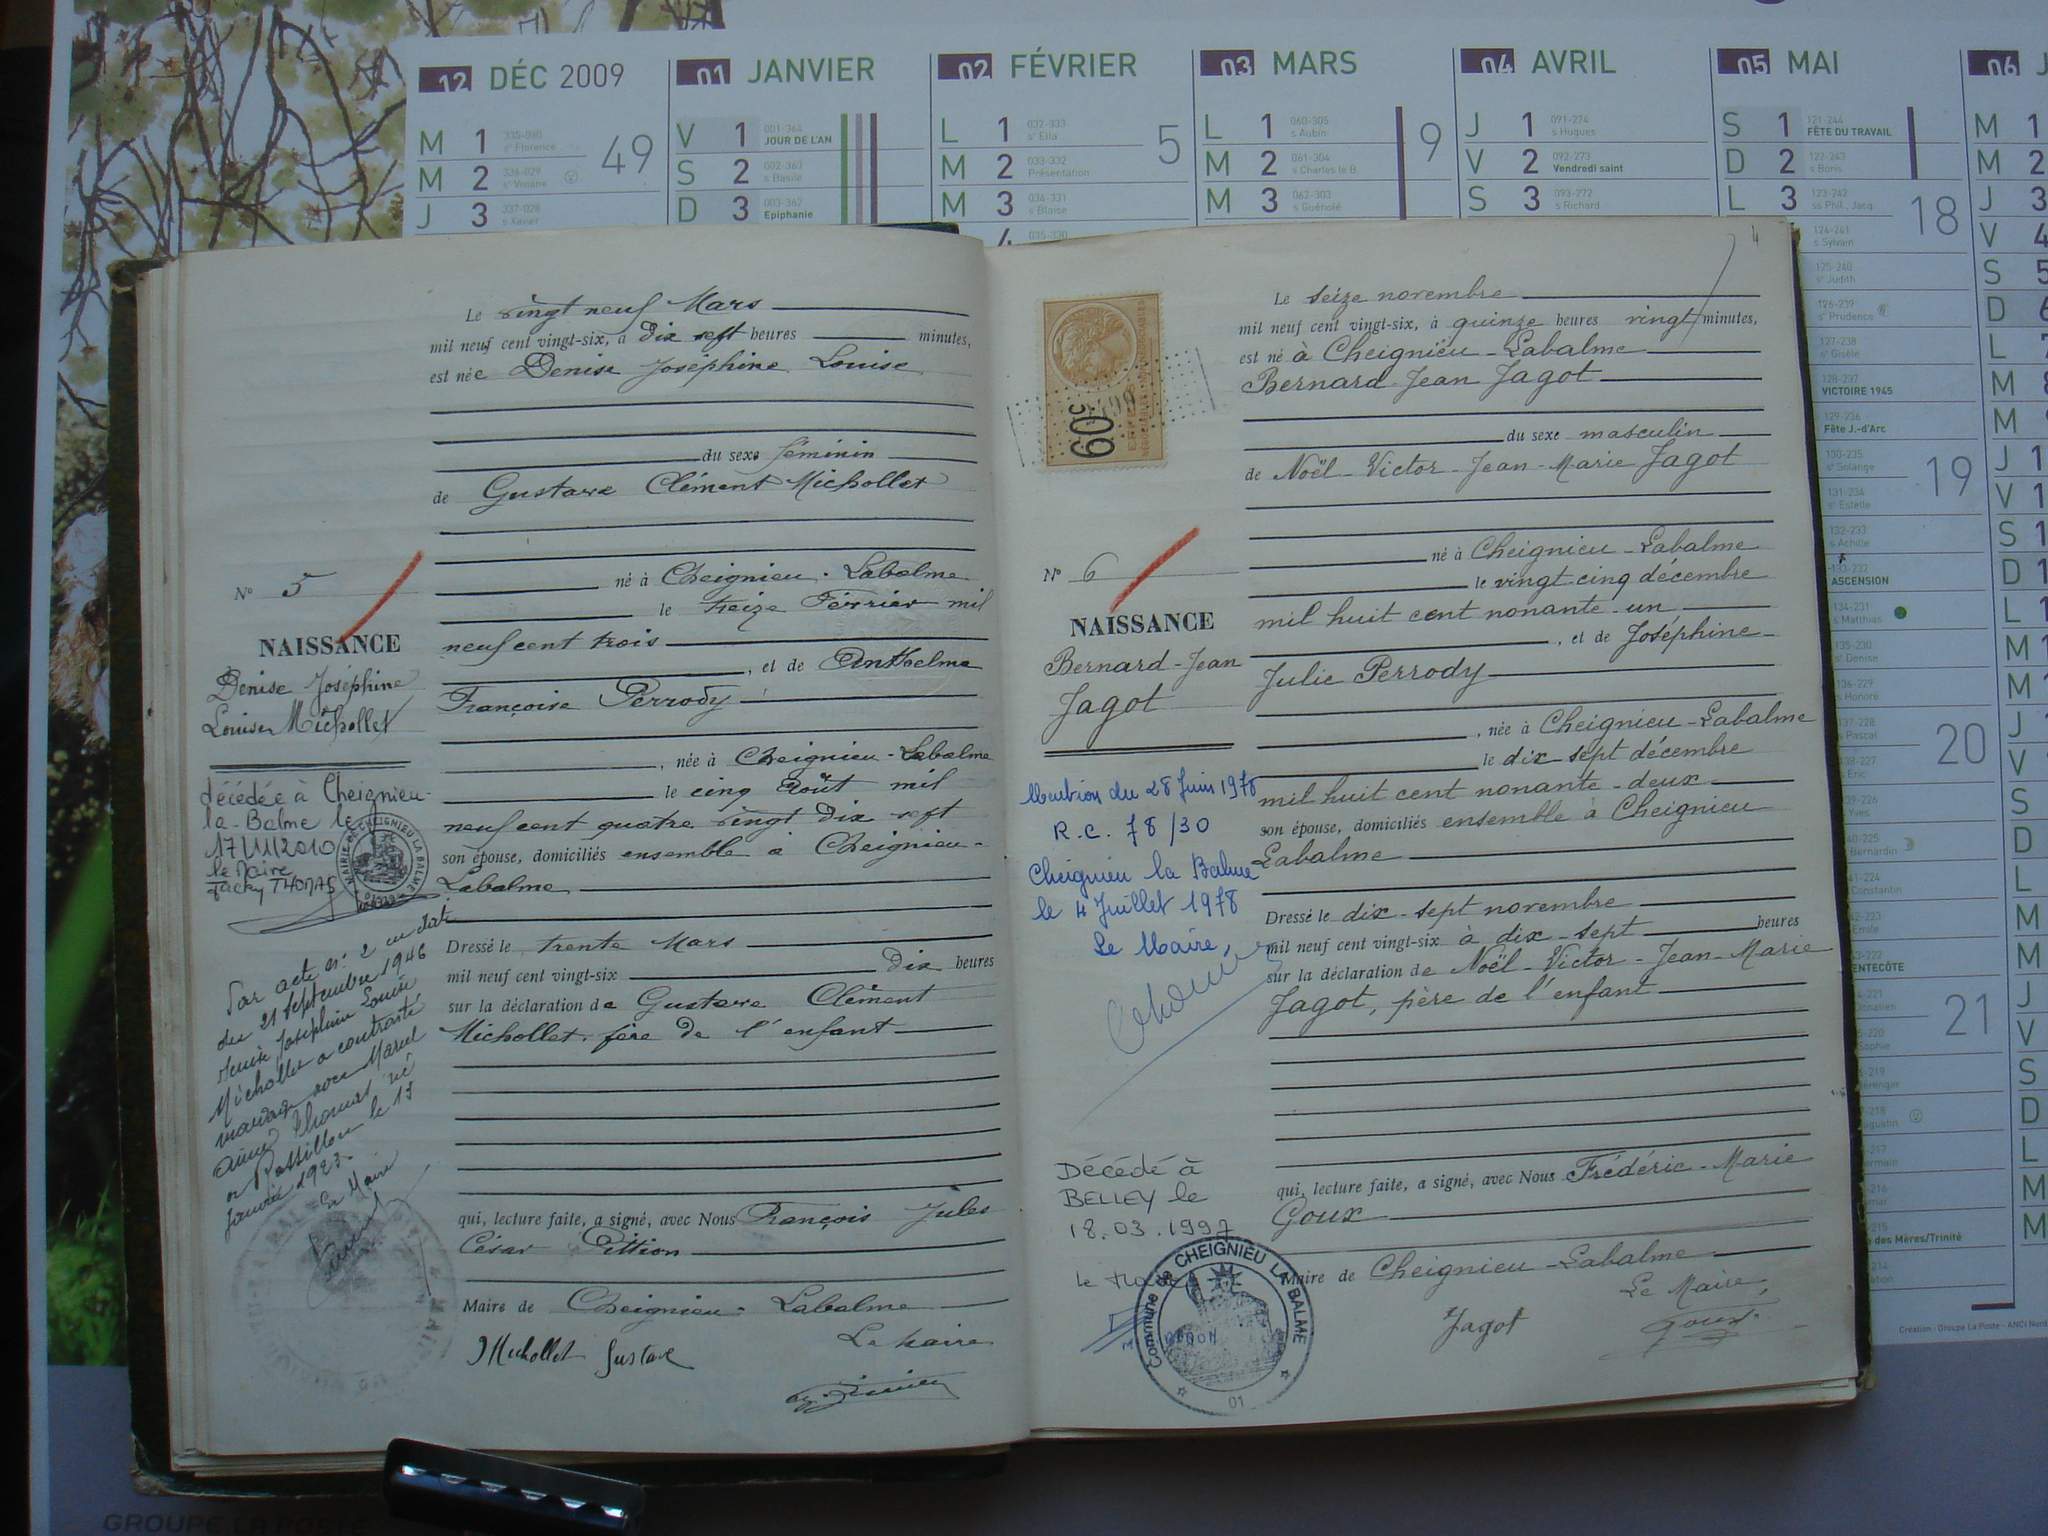 12 DÉC 2009
M 1 335-030 sᵉ Florence 49
M 2 336-029 sᵉ Viviane
J 3 337-028 s Xavier
01 JANVIER
V 1 001-364 JOUR DE L'AN
S 2 002-363 s Basile
D 3 003-362 Epiphanie
02 FÉVRIER
L 1 032-333 sᵉ Ella 5
M 2 033-332 Présentation
M 3 034-331 s Blaise
4 035-330
03 MARS
L 1 060-305 s Aubin 9
M 2 061-304 s Charles le B.
M 3 062-303 s Guénolé
04 AVRIL
J 1 091-274 s Hugues
V 2 092-273 Vendredi saint
S 3 093-272 s Richard
05 MAI
S 1 121-244 FÊTE DU TRAVAIL
D 2 122-243 s Boris
L 3 123-242 ss Phil., Jacq. 18
124-241 s Sylvain
125-240 sᵉ Judith
126-239 sᵉ Prudence
127-238 sᵉ Gisèle
128-237 VICTOIRE 1945
129-236 Fête J.-d'Arc
sᵉ Solange 19
131-234 sᵉ Estelle
132-233 s Achille
ASCENSION
134-231 s Matthias
135-230 sᵉ Denise
136-229 s Honoré
137-228 s Pascal 20
138-227 s Eric
s Yves
Bernardin
Constantin
Emile
PENTECÔTE
21
Fête des Mères/Trinité
06
Création : Groupe La Poste
GROUPE LA POSTE
Le vingt neuf Mars
mil neuf cent vingt-six, à dix sept heures minutes,
est née Denise Joséphine Louise
du sexe féminin
de Gustave Clément Michollet
né à Cheignieu-Labalme
le treize Février mil
neuf cent trois
, et de Anthelme
Françoise Perrody
, née à Cheignieu-Labalme
le cinq Août mil
neuf cent quatre vingt dix sept
son épouse, domiciliés ensemble à Cheignieu-
Labalme
Dressé le trente Mars
mil neuf cent vingt-six dix heures
sur la déclaration de Gustave Clément
Michollet père de l'enfant
qui, lecture faite, a signé, avec Nous François Jules
César Pittion
Maire de Cheignieu-Labalme
Le maire
Michollet Gustave
N° 5
NAISSANCE
Denise Joséphine
Louise Michollet
décédée à Cheignieu-
la-Balme le
17/11/2010
le Maire
Jacky THOMAS
MAIRIE DE CHEIGNIEU LA BALME
Par acte n° 2 en date
du 21 septembre 1946
denise Joséphine Louise
Michollet a contracté
mariage avec Marcel
aimé Thomas né
a Rossillon le 17
Janvier 1923.
Le Maire
4
60
Le seize novembre
mil neuf cent vingt-six, à quinze heures vingt minutes,
est né à Cheignieu-Labalme
Bernard Jean Jagot
du sexe masculin
de Noël-Victor-Jean-Marie Jagot
né à Cheignieu-Labalme
le vingt-cinq décembre
mil huit cent nonante-un
, et de Joséphine
Julie Perrody
, née à Cheignieu-Labalme
le dix-sept décembre
mil huit cent nonante-deux
son épouse, domiciliés ensemble à Cheignieu
Labalme
Dressé le dix-sept novembre
mil neuf cent vingt-six à dix-sept heures
sur la déclaration de Noël-Victor-Jean-Marie
Jagot, père de l'enfant
qui, lecture faite, a signé, avec Nous Frédéric-Marie
Goux
Maire de Cheignieu-Labalme
Le Maire,
Jagot
Goux
N° 6
NAISSANCE
Bernard-Jean
Jagot
Mention du 28 Juin 1978
R.C. 78/30
Cheignieu la Balme
le 4 Juillet 1978
Le Maire,
Décédé à
BELLEY le
18.03.1997
Le Maire
Commune de CHEIGNIEU LA BALME
01